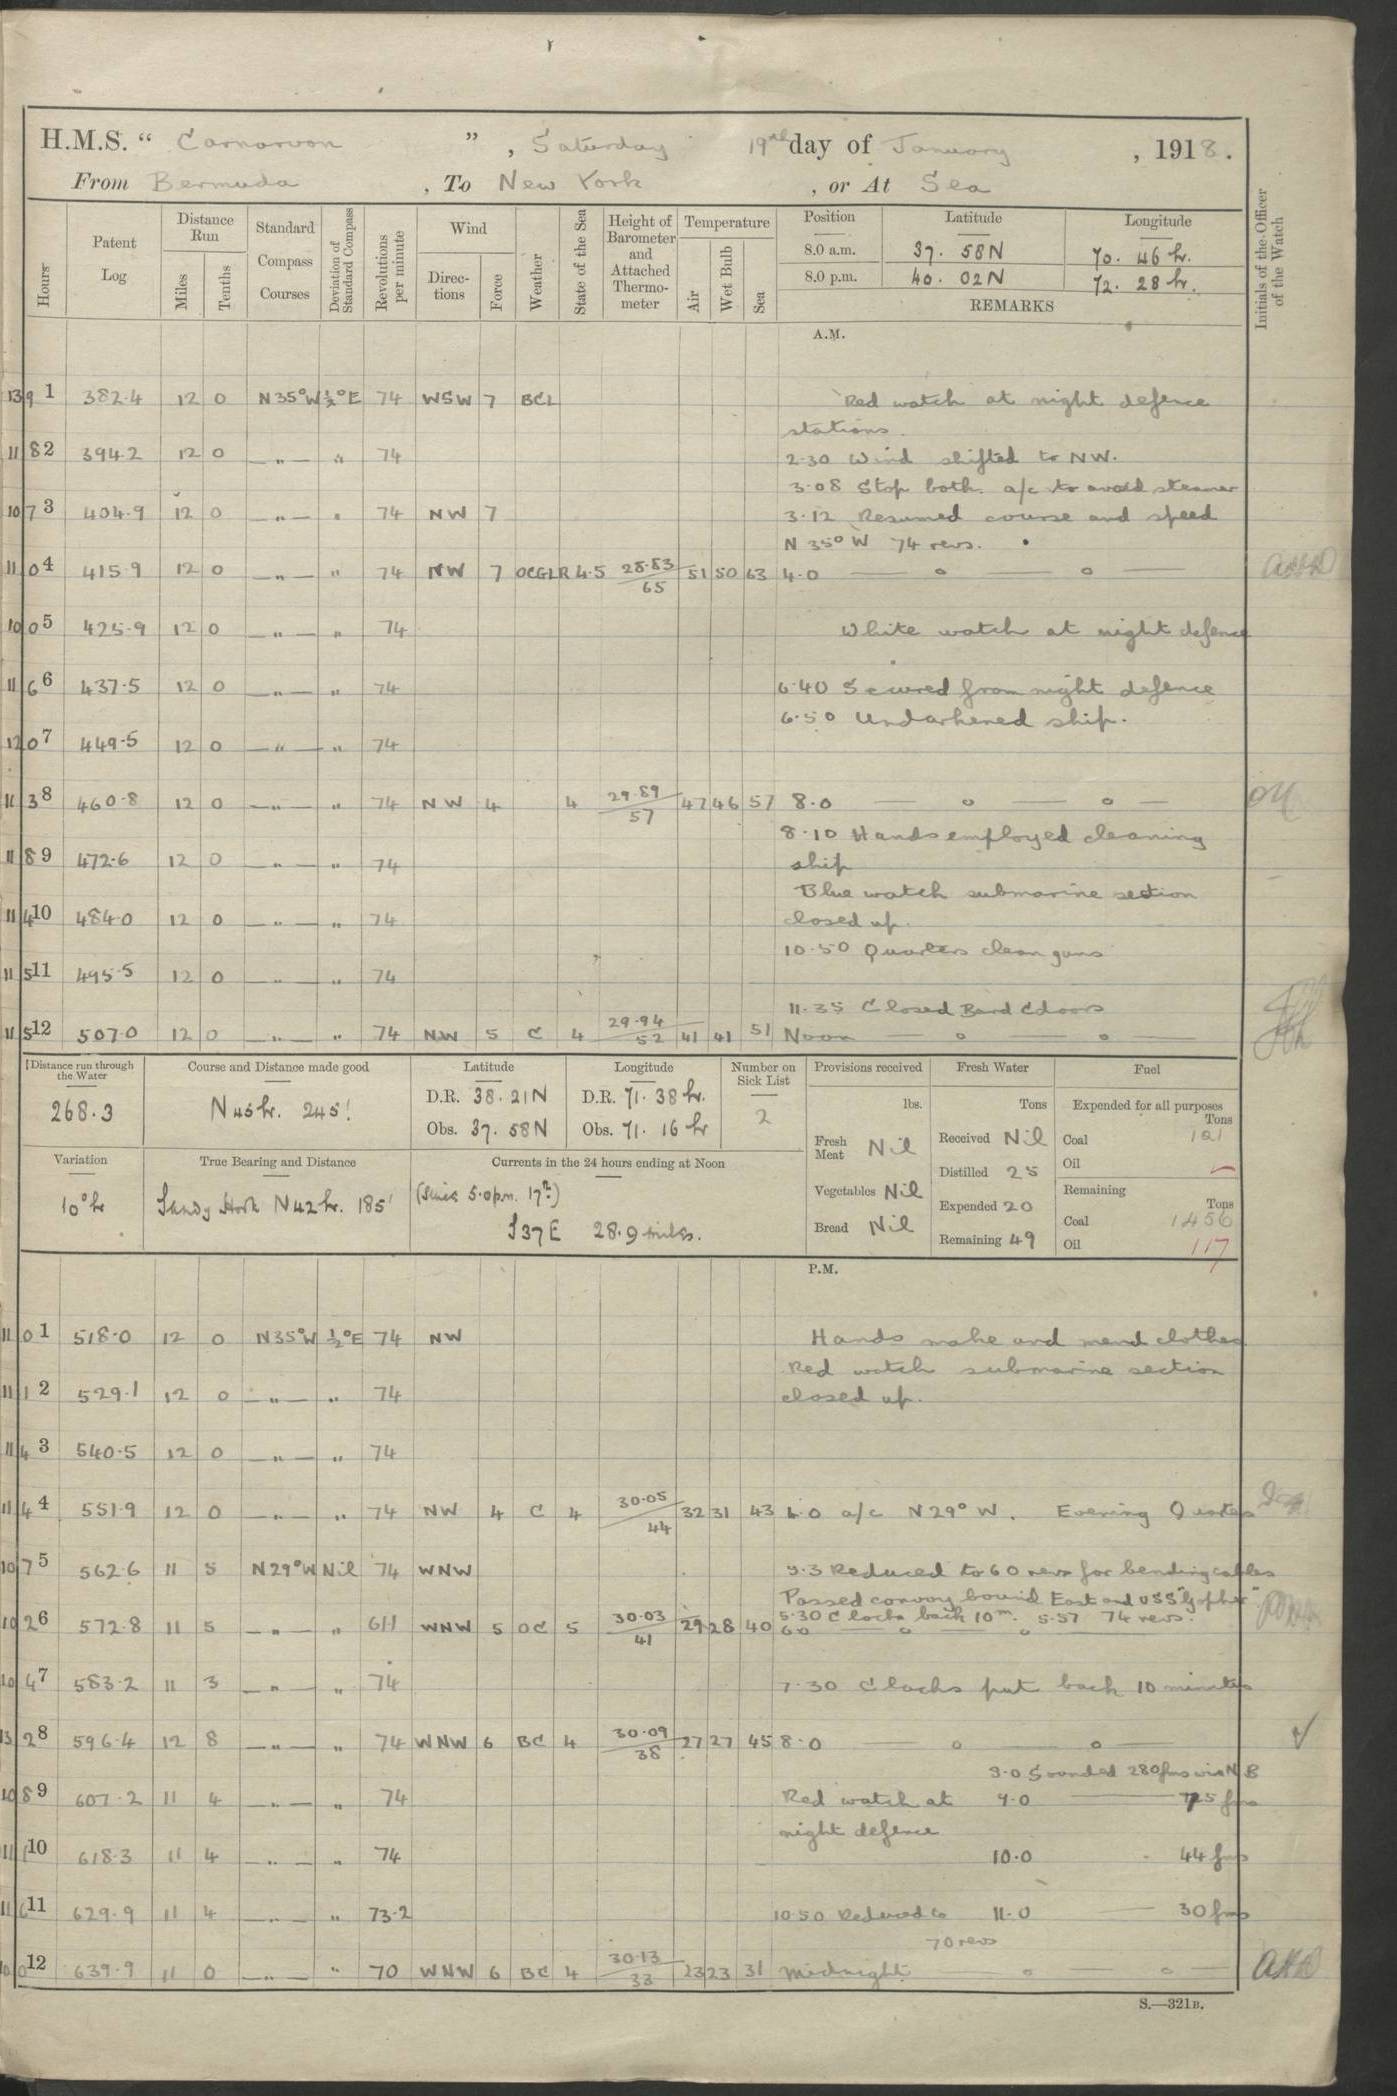 H.M.S. " Carnarvon ", Saturday 19th day of January, 1918.
From Bermuda, To New York, or At Sea
Hours Patent Log Distance Run Miles Tenths Standard Compass Courses Deviation of Standard Compass Revolutions per minute Wind Directions Force Weather State of the Sea Height of Barometer and Attached Thermometer Temperature Air Wet Bulb Sea Position Latitude Longitude Initials of the Officer of the Watch
8.0 a.m. 37. 58N 70. 46 W.
8.0 p.m. 40. 02N 72. 28 W.
REMARKS
A.M.
139 1 382.4 12 0 N35°W ½°E 74 WSW 7 BCL Red watch at night defence
stations.
118 2 394.2 12 0 —"— " 74 2.30 Wind shifted to NW.
3.08 Stop both. a/c to avoid steamer
107 3 404.9 12 0 —"— " 74 NW 7 3.12 Resumed course and speed
N 35° W 74 revs.
110 4 415.9 12 0 —"— " 74 NW 7 OCGLR 4.5 28.83/65 51 50 63 4.0
100 5 425.9 12 0 —"— " 74 White watch at night defence
116 6 437.5 12 0 —"— " 74 6.40 Secured from night defence
6.50 Undarkened ship.
120 7 449.5 12 0 —"— " 74
113 8 460.8 12 0 —"— " 74 NW 4 4 29.89/57 47 46 57 8.0
8.10 Hands employed cleaning
118 9 472.6 12 0 —"— " 74 ship
Blue watch submarine section
114 10 484.0 12 0 —"— " 74 closed up.
10.50 Quarters clean guns
115 11 495.5 12 0 —"— " 74
11.35 Closed B and C doors
115 12 507.0 12 0 —"— " 74 NW 5 C 4 29.94/52 41 41 51 Noon
Distance run through the Water Course and Distance made good Latitude Longitude Number on Sick List Provisions received Fresh Water Fuel
268.3 N45W. 245' D.R. 38. 21N D.R. 71. 38 W. 2 lbs. Tons Expended for all purposes Tons
Obs. 37. 58N Obs. 71. 16 W Fresh Meat Nil Received Nil Coal 121
Distilled 25 Oil —
Variation True Bearing and Distance Currents in the 24 hours ending at Noon Vegetables Nil Expended 20 Remaining Tons
10°W Sandy Hook N42W. 185' (Since 5.0pm. 17th) Coal 1456
S37E 28.9 miles. Bread Nil Remaining 49 Oil 117
P.M.
110 1 518.0 12 0 N35°W ½°E 74 NW Hands make and mend clothes
Red watch submarine section
111 2 529.1 12 0 —"— " 74 closed up.
114 3 540.5 12 0 —"— " 74
114 4 551.9 12 0 —"— " 74 NW 4 C 4 30.05/44 32 31 43 4.0 a/c N29° W. Evening Quarters
107 5 562.6 11 5 N29°W Nil 74 WNW 5.3 Reduced to 60 revs for bending cables
Passed convoy bound East and USS "Gopher"
5.30 Clocks back 10m. 5.57 74 revs.
102 6 572.8 11 5 —"— " 61.1 WNW 5 OC 5 30.03/41 29 28 40 6.0
104 7 583.2 11 3 —"— " 74 7.30 Clocks put back 10 minutes
132 8 596.4 12 8 —"— " 74 WNW 6 BC 4 30.09/38 27 27 45 8.0
9.0 Sounded 280 fms
108 9 607.2 11 4 —"— " 74 Red watch at 9.0 — 75 fms
night defence
111 10 618.3 11 4 —"— " 74 10.0 44 fms
116 11 629.9 11 4 —"— " 73.2 10.50 Reduced to 11.0 — 30 fms
70 revs
100 12 639.9 11 0 —"— " 70 WNW 6 BC 4 30.13/33 23 23 31 Midnight
S.—321B.